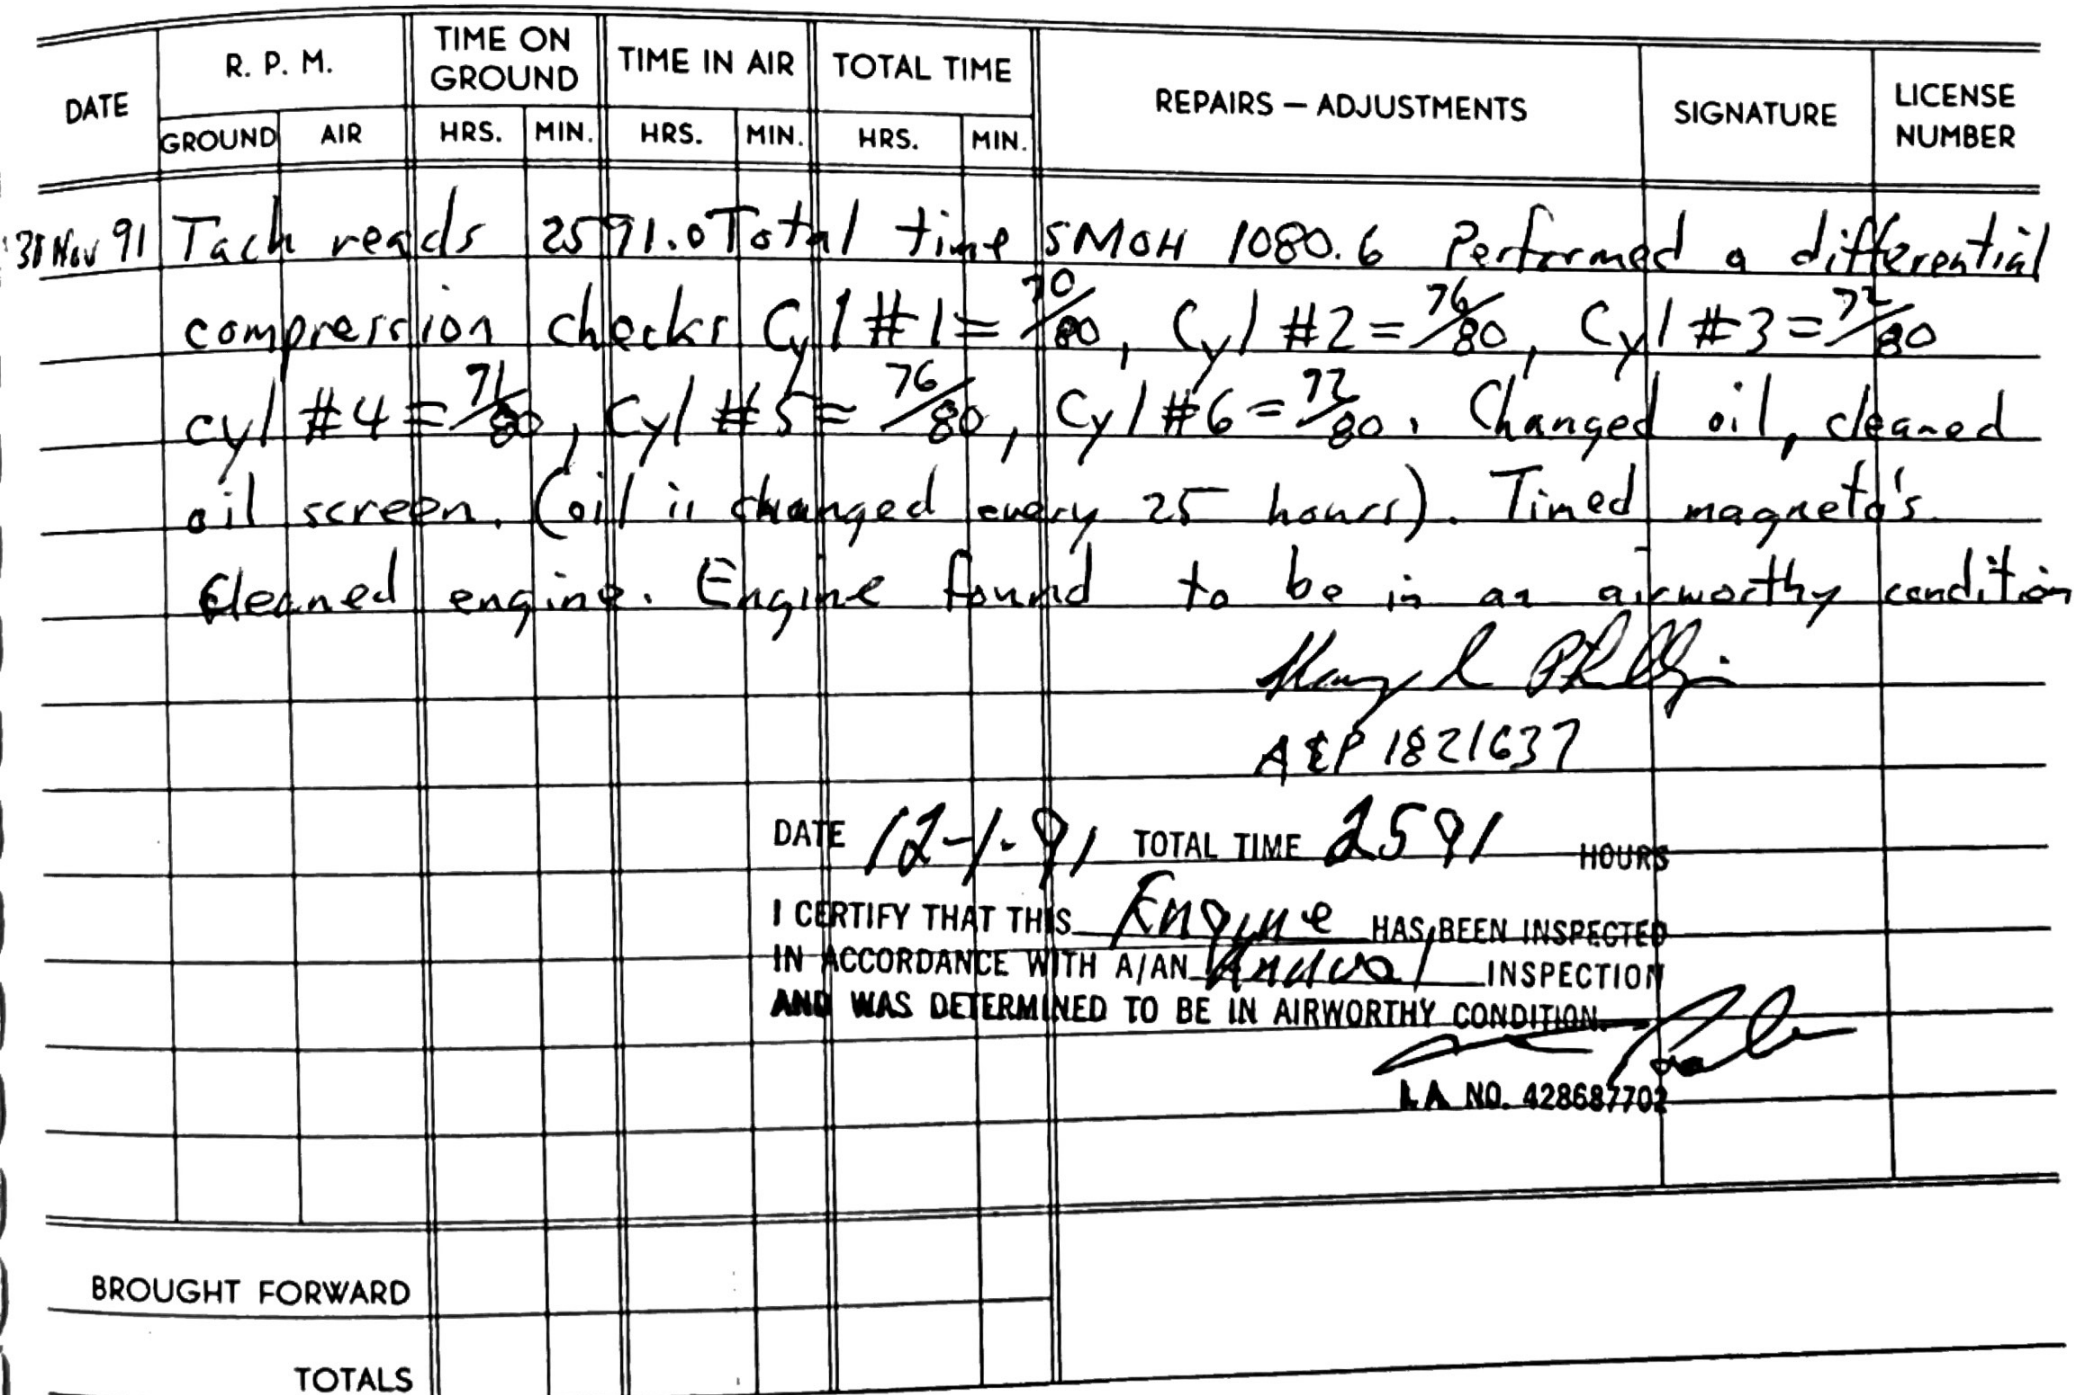 DATE R. P. M. TIME ON GROUND TIME IN AIR TOTAL TIME REPAIRS — ADJUSTMENTS SIGNATURE LICENSE NUMBER
GROUND AIR HRS. MIN. HRS. MIN. HRS. MIN.
Nov 91 Tach reads 2591.0 Total time SMOH 1080.6 Performed a differential
compression checks Cyl #1 = 70/80, Cyl #2 = 76/80, Cyl #3 = 72/80
cyl #4 = 71/80, Cyl #5 = 76/80, Cyl #6 = 72/80. Changed oil, cleaned
oil screen. (oil is changed every 25 hours). Timed magneto's.
Cleaned engine. Engine found to be in an airworthy condition
A&P 1821637
DATE 12-1-91 TOTAL TIME 2591 HOURS
I CERTIFY THAT THIS Engine HAS BEEN INSPECTED
IN ACCORDANCE WITH A/AN Annual INSPECTION
AND WAS DETERMINED TO BE IN AIRWORTHY CONDITION.
I.A. NO. 428687702
BROUGHT FORWARD
TOTALS